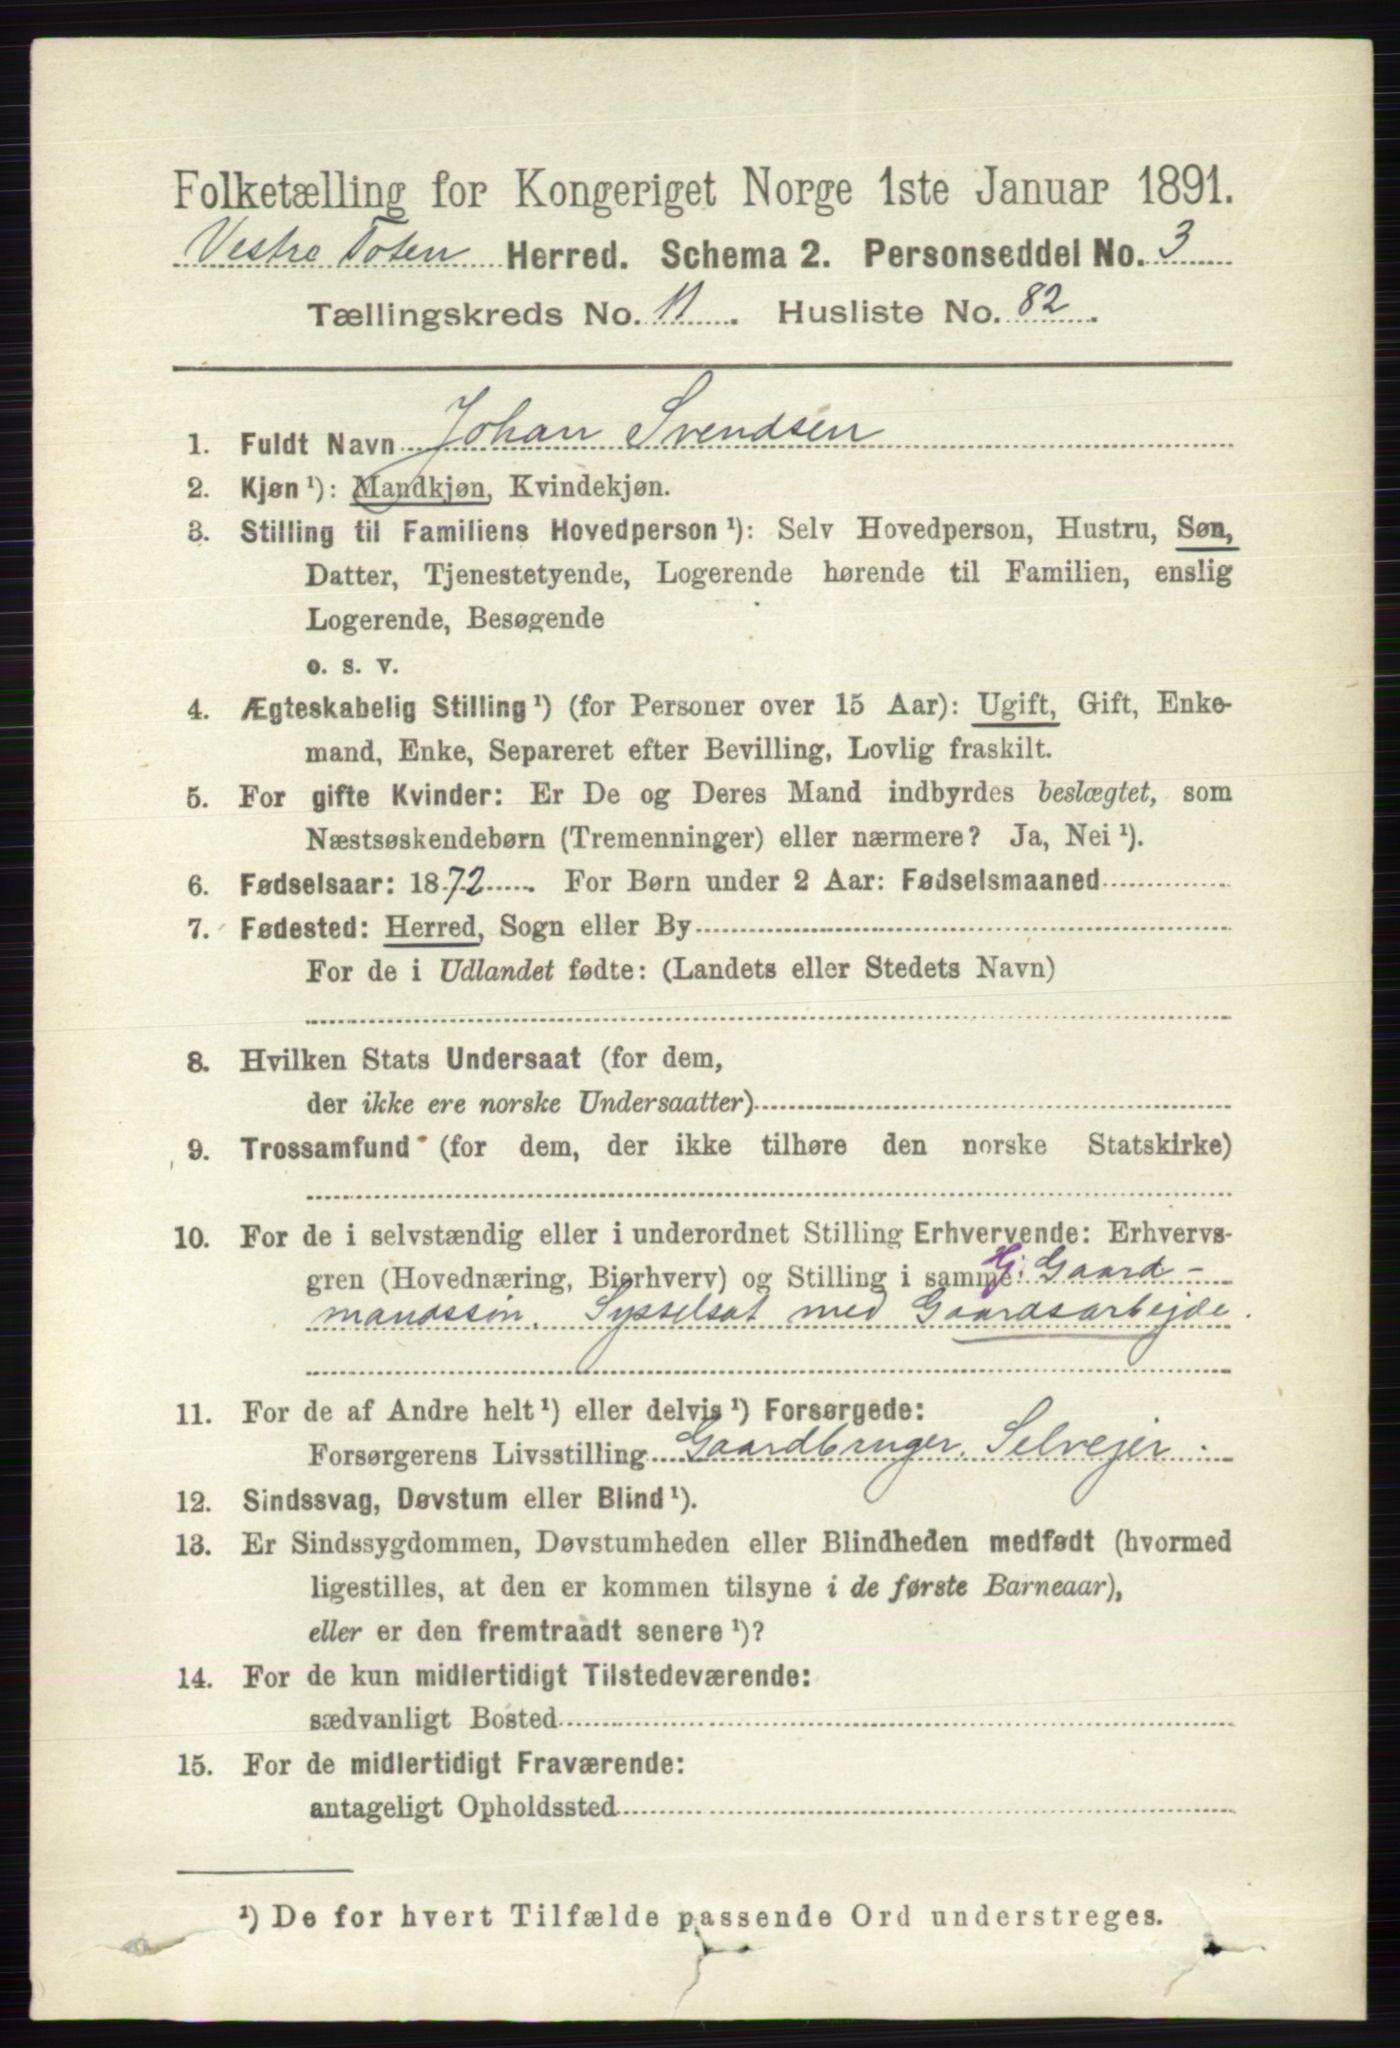 Folketælling for Kongeriget Norge 1ste Januar 1891.
Vestre Toten Herred. Schema 2. Personseddel No. 3
Tællingskreds No. 11. Husliste No. 82.
1. Fuldt Navn Johan Svendsen
2. Kjøn ¹): Mandkjøn, Kvindekjøn.
3. Stilling til Familiens Hovedperson ¹): Selv Hovedperson, Hustru, Søn,
Datter, Tjenestetyende, Logerende hørende til Familien, enslig
Logerende, Besøgende
o. s. v.
4. Ægteskabelig Stilling ¹) (for Personer over 15 Aar): Ugift, Gift, Enke-
mand, Enke, Separeret efter Bevilling, Lovlig fraskilt.
5. For gifte Kvinder: Er De og Deres Mand indbyrdes beslægtet, som
Næstsøskendebørn (Tremenninger) eller nærmere? Ja, Nei ¹).
6. Fødselsaar: 1872. For Børn under 2 Aar: Fødselsmaaned
7. Fødested: Herred, Sogn eller By
For de i Udlandet fødte: (Landets eller Stedets Navn)
8. Hvilken Stats Undersaat (for dem,
der ikke ere norske Undersaatter)
9. Trossamfund (for dem, der ikke tilhøre den norske Statskirke)
10. For de i selvstændig eller i underordnet Stilling Erhvervende: Erhvervs-
gren (Hovednæring, Bierhverv) og Stilling i samme Hj Gaard-
mandssøn. Sysselsat med Gaardsarbejde.
11. For de af Andre helt ¹) eller delvis ¹) Forsørgede:
Forsørgerens Livsstilling Gaardbruger, Selvejer.
12. Sindssvag, Døvstum eller Blind ¹).
13. Er Sindssygdommen, Døvstumheden eller Blindheden medfødt (hvormed
ligestilles, at den er kommen tilsyne i de første Barneaar),
eller er den fremtraadt senere ¹)?
14. For de kun midlertidigt Tilstedeværende:
sædvanligt Bosted
15. For de midlertidigt Fraværende:
antageligt Opholdssted
¹) De for hvert Tilfælde passende Ord understreges.